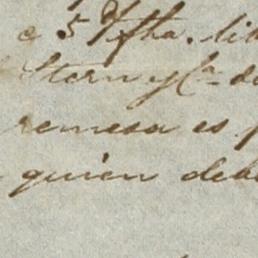 e 5 d/fha. lib
Stern y Ca de
remesa es p
quien deb